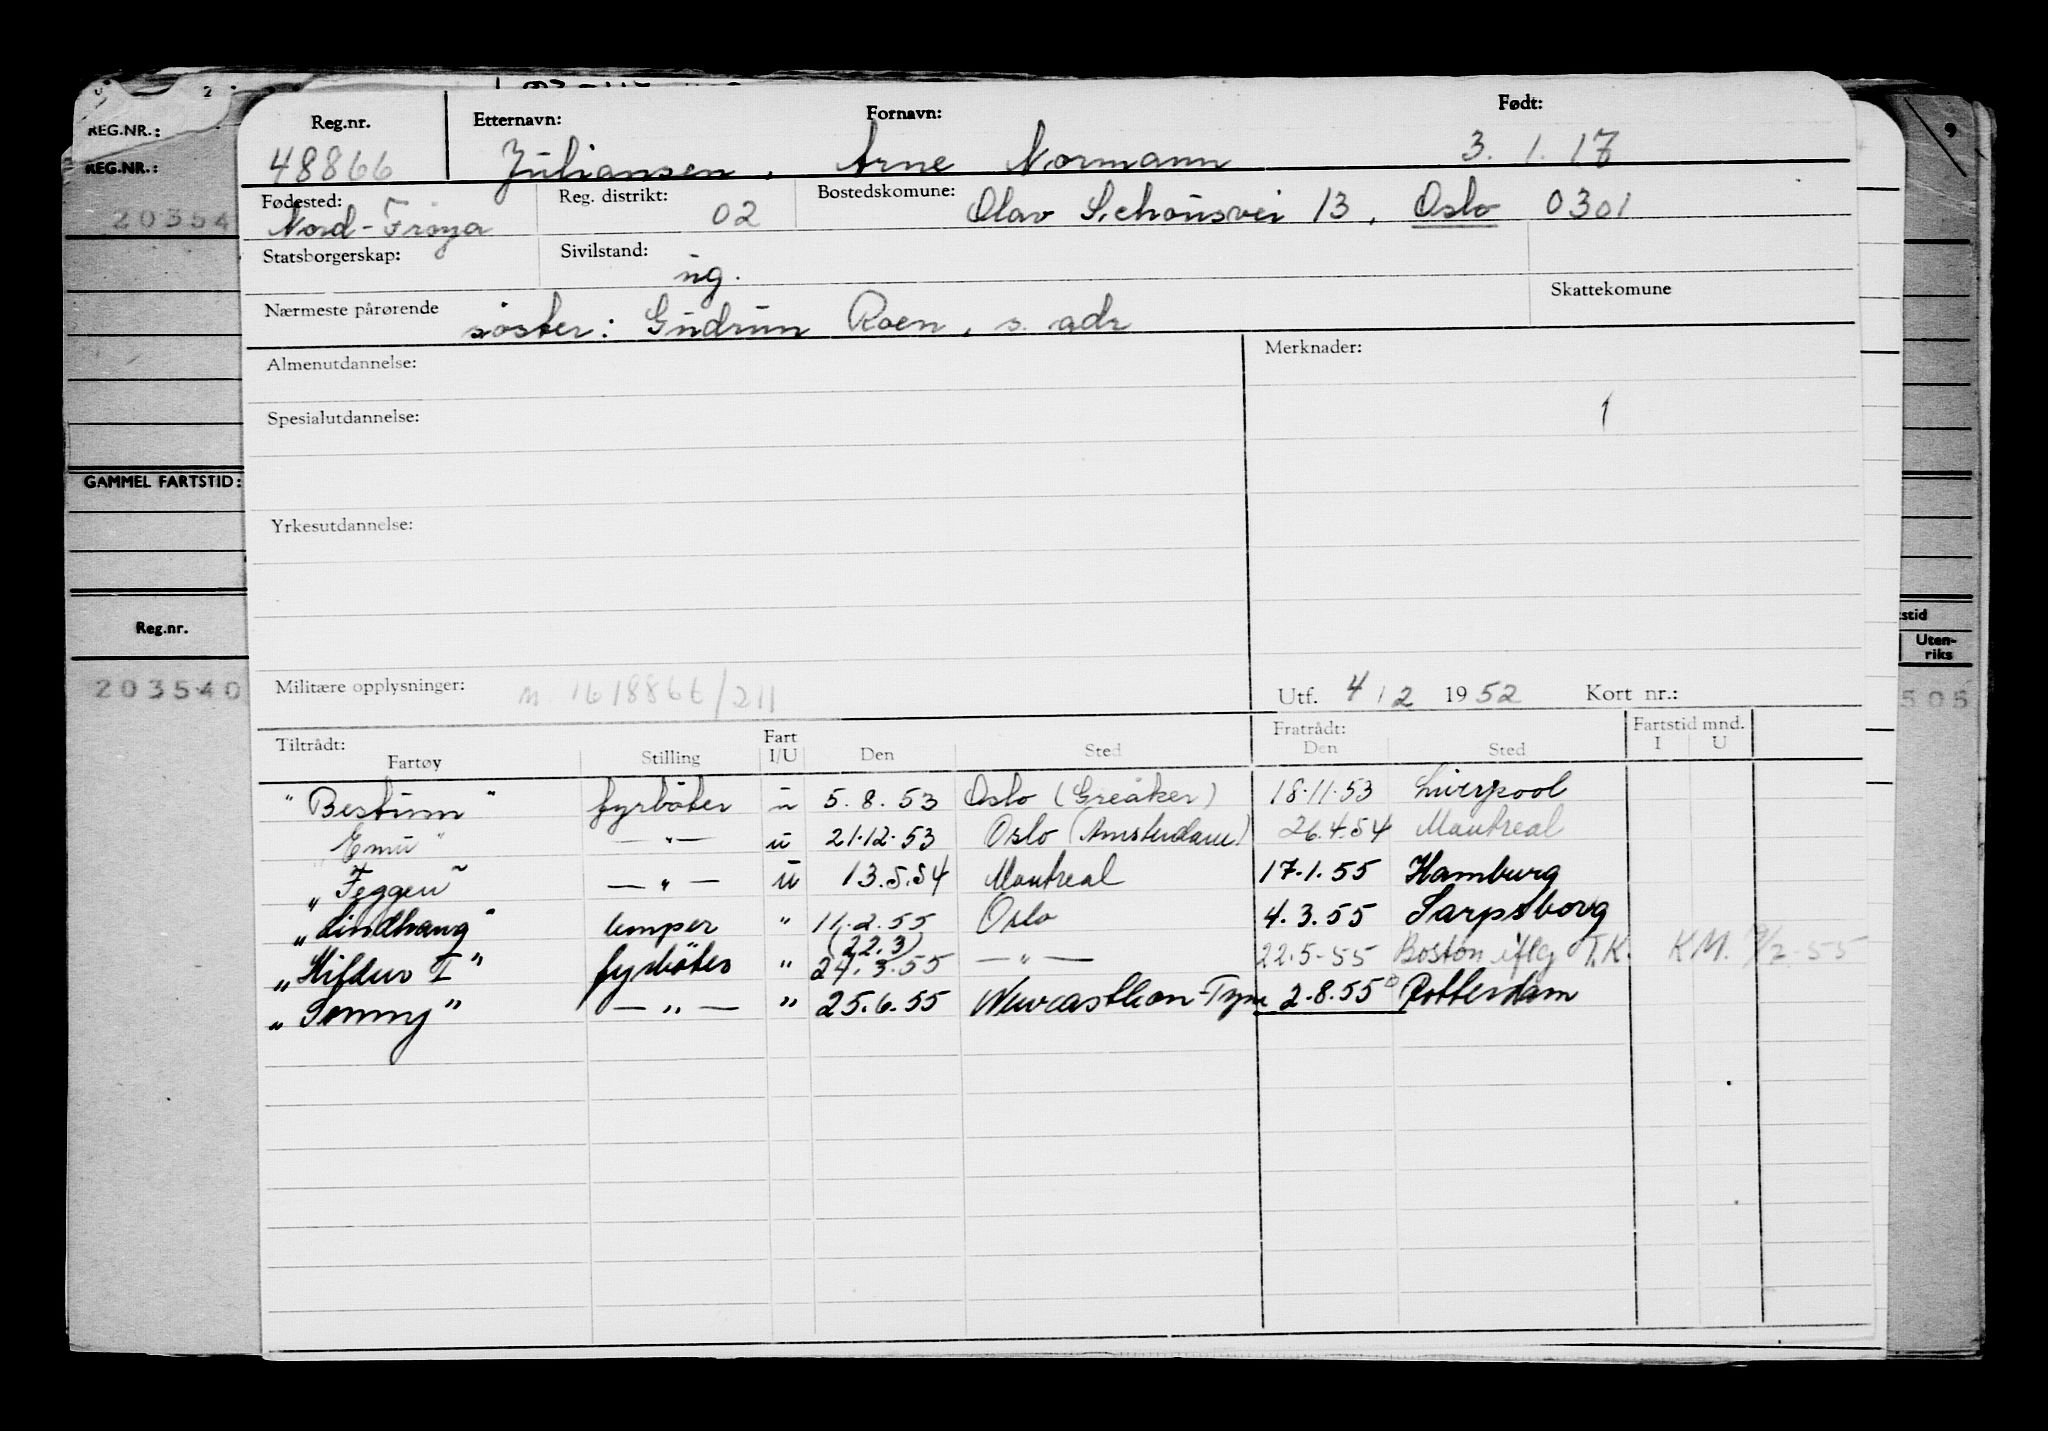 REG.NR.:
REG.NR.:
203540
GAMMEL FARTSTID:
Reg.nr.
203540
Reg.nr. Etternavn: Fornavn: Født:
48866 Juliansen, Arne Normann 3.1.17
Fødested: Reg. distrikt: Bostedskomune:
Nord-Frøya 02 Olav Schousvei 13, Oslo 0301
Statsborgerskap: Sivilstand: ug.
Nærmeste pårørende søster: Gudrun Roen, s. adr Skattekomune
Almenutdannelse: Merknader:
Spesialutdannelse: 1
Yrkesutdannelse:
Militære opplysninger: m. 1618866/211 Utf. 4/2 1952 Kort nr.:
Tiltrådt: Fratrådt: Fartstid mnd.
Fartøy Stilling Fart I/U Den Sted Den Sted I U
"Bestum" fyrbøter u 5.8.53 Oslo (Greåker) 18.11.53 Liverpool
"Emu" —"— u 21.12.53 Oslo (Amsterdam) 26.4.54 Montreal
"Feggen" —"— u 13.5.54 Montreal 17.1.55 Hamburg
"Lindhaug" lemper " 11.2.55 Oslo 4.3.55 Sarpsborg
(22.3)
"Hildur I" fyrbøter " 24.3.55 —"— 22.5.55 Boston iflg T.K. K.M. 7/7-55
"Sonny" —"— " 25.6.55 Newcastle on-Tyne 2.8.55 Rotterdam
stid
Uten-
riks
505